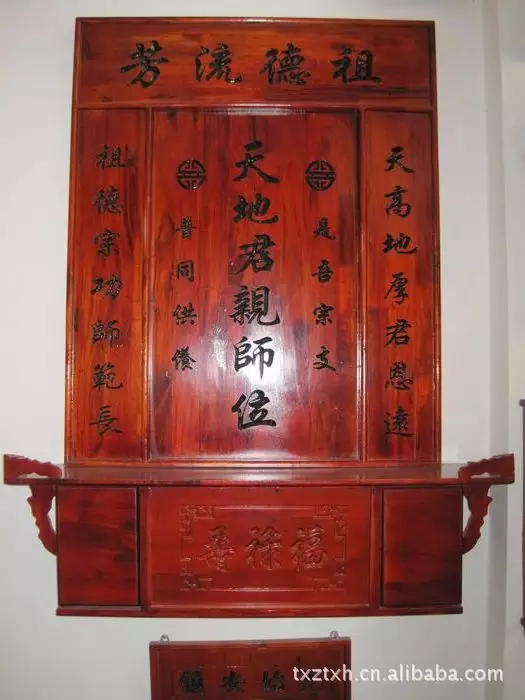 祖德流芳
天高地厚君恩遠
是吾宗支
天地君親師位
普同供養
祖德宗功師範長
福祿壽
txztxh.cn.alibaba.com